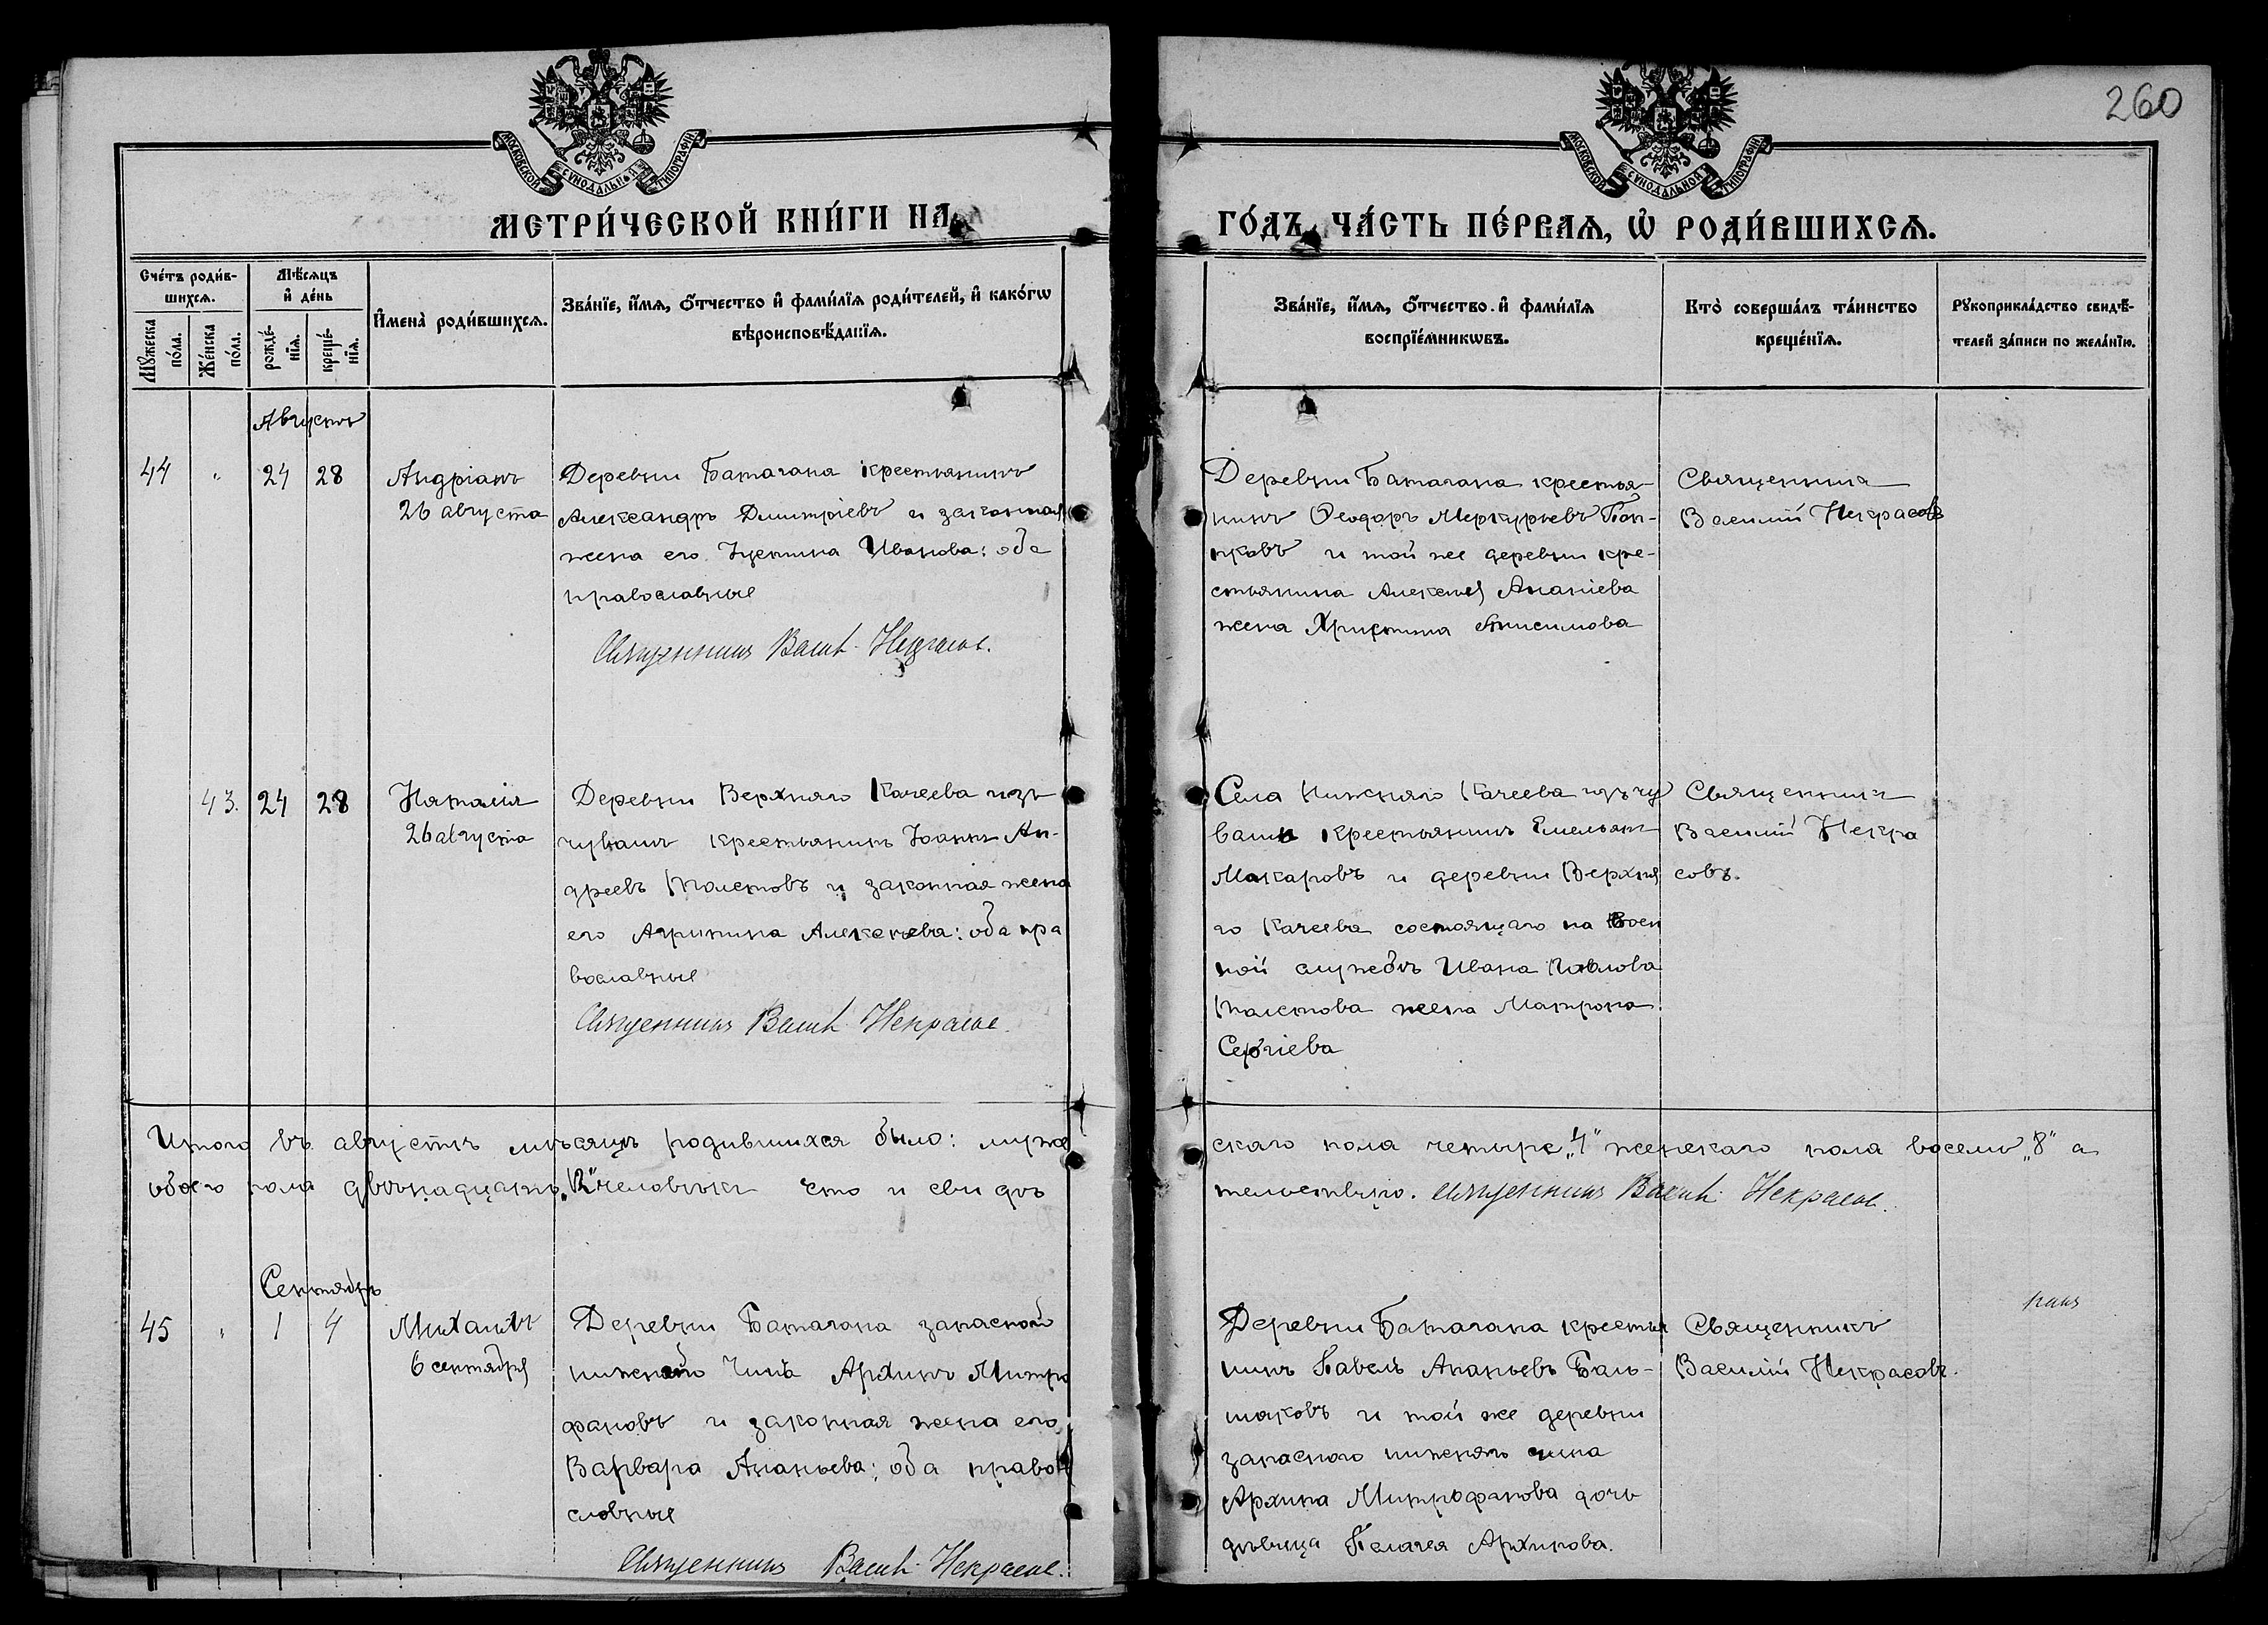 260
МОСКОВСКОЙ СѴНОДАЛЬНОЙ ТИПОГРАФІИ
МОСКОВСКОЙ СѴНОДАЛЬНОЙ ТИПОГРАФІИ
МЕТРИ́ЧЕСКОЙ КНИ́ГИ НА
ГО́ДЪ, ЧА́СТЬ ПЕ́РВАЯ, Ѡ РОДИ́ВШИХСЯ.
Сче́тъ роди́в-
шихся.
Мꙋ́жеска
по́ла.
Же́нска
по́ла.
Мѣ́сяцъ
и҆ де́нь
рожде́-
нїя.
креще́-
нїя.
И҆мена̀ роди́вшихся.
Зва́нїе, и҆́мя, ѻ҆́тчество и҆ фами́лїя роди́телей, и҆ како́гѡ
вѣроисповѣ́данїя.
Зва́нїе, и҆́мя, ѻ҆́тчество и҆ фами́лїя
воспрїе́мникѡвъ.
Кто̀ соверша́лъ та́инство
креще́нїя.
Рꙋкоприкла́дство свидѣ́-
телей за́писи по жела́нїю.
Августъ
44 " 24 28
Андріанъ
26 августа
Деревни Батагана крестьянинъ
Александръ Димитріевъ и законная
жена его Іустина Иванова: оба
православные
Священникъ Васил. Некрасов.
Деревни Батагана крестья-
нинъ Ѳеодоръ Меркурьевъ
и той же деревни кре-
стьянина Алексея Ананіева
жена Христина Анисимова
Священникъ
Василій Некрасовъ
43. 24 28
Наталия
26 августа
Деревни Верхняго Качеева изъ
чувашъ крестьянинъ Іоаннъ Ан-
дреевъ Толстовъ и законная жена
его Агрипина Алексеева: оба пра
вославные
Священникъ Васил. Некрасов.
Села Нижняго Качеева изъ чу
вашъ крестьянинъ Емельянъ
Макаровъ и деревни Верхня
го Качеева состоящаго на воен
ной службѣ Ивана Павлова
Толстова жена Матрона
Сергіева
Священникъ
Василій Некра
совъ.
Итого въ августѣ мѣсяцѣ родившихся было: муже
скаго пола четыре "4" женскаго пола восемь "8" а
обоего пола двѣнадцать "12" человѣкъ Что и свидѣ
тельствую. Священникъ Васил. Некрасов.
Сентябрь
45 " 1 4
Михаилъ
6 сентября
Деревни Батагана запасной
нижній Чинъ Архипъ Митро
фановъ и законная жена его
Варвара Ананьева; оба право
славные
Священникъ Васил. Некрасов.
Деревни Батагана крестья
нинъ Павелъ Ананьевъ Боль-
шаковъ и той же деревни
запасного нижняго чина
Архипа Митрофанова дочь
дѣвица Пелагея Архипова.
Священникъ
Василій Некрасовъ.